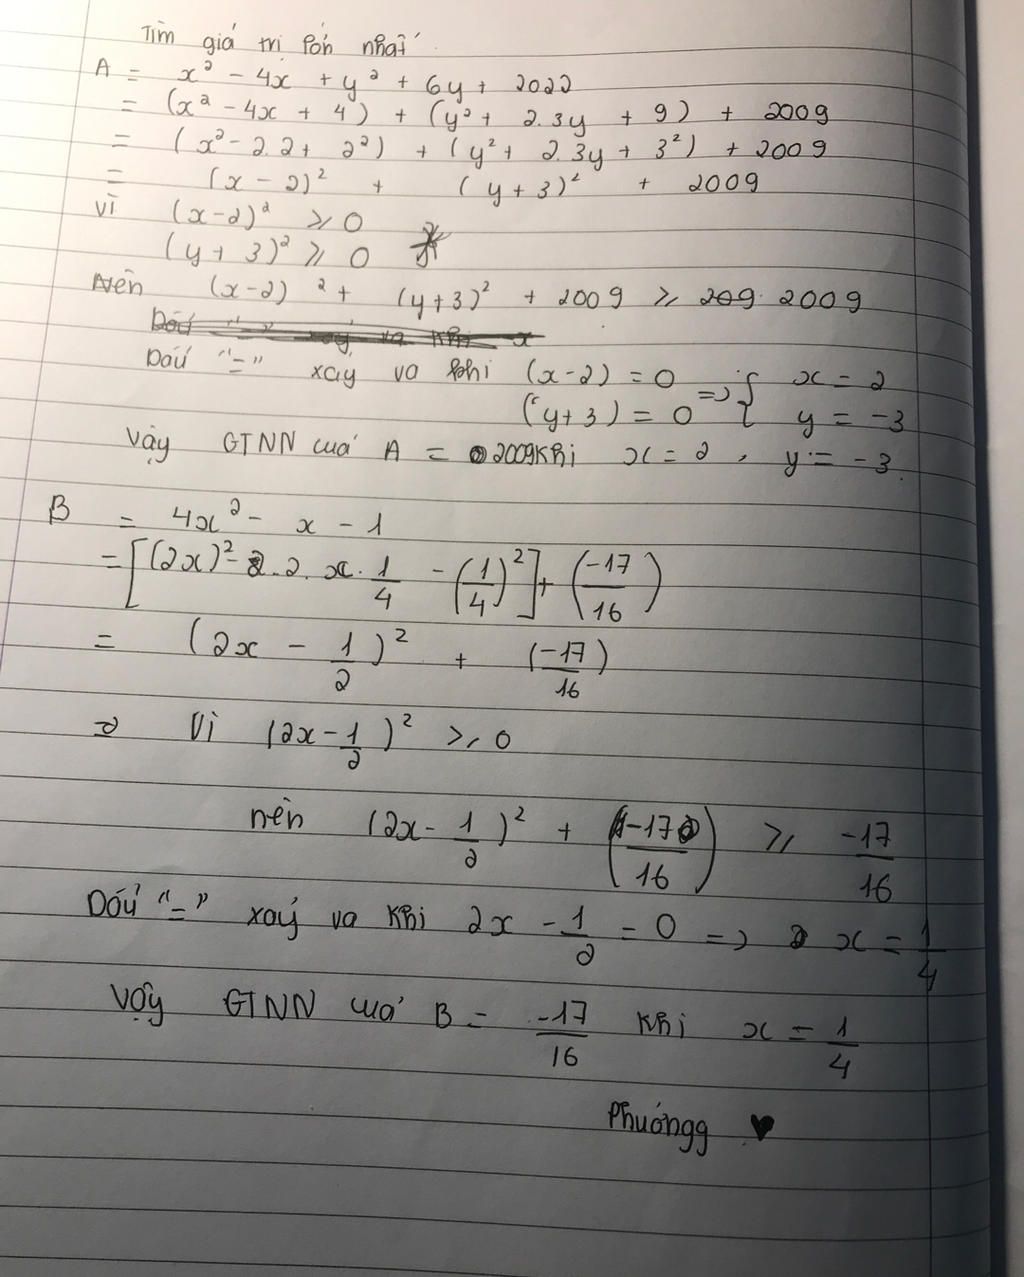 Tìm giá trị lớn nhất
A = x² - 4x + y² + 6y + 2022
= (x² - 4x + 4) + (y² + 2.3y + 9) + 2009
= (x² - 2.2 + 2²) + (y² + 2.3y + 3²) + 2009
= (x - 2)² + (y + 3)² + 2009
Vì (x-2)² ≥ 0
(y + 3)² ≥ 0
Nên (x-2)² + (y+3)² + 2009 ≥ 209 2009
Dấu "=" xảy va khi x
Dấu "=" xảy va khi (x-2) = 0 => { x = 2
(y+3) = 0 y = -3
Vậy GTNN cuả A = 2009 khi x = 2 , y = -3.
B = 4x² - x - 1
= [(2x)² - 2.2.x.1/4 - (1/4)²] + (-17/16)
= (2x - 1/2)² + (-17/16)
Vì (2x - 1/2)² ≥ 0
nên (2x - 1/2)² + (-17/16) ≥ -17/16
Dấu "=" xảy va khi 2x - 1/2 = 0 => x = 1/4
Vậy GTNN cuả B = -17/16 khi x = 1/4
Phươngg ♥